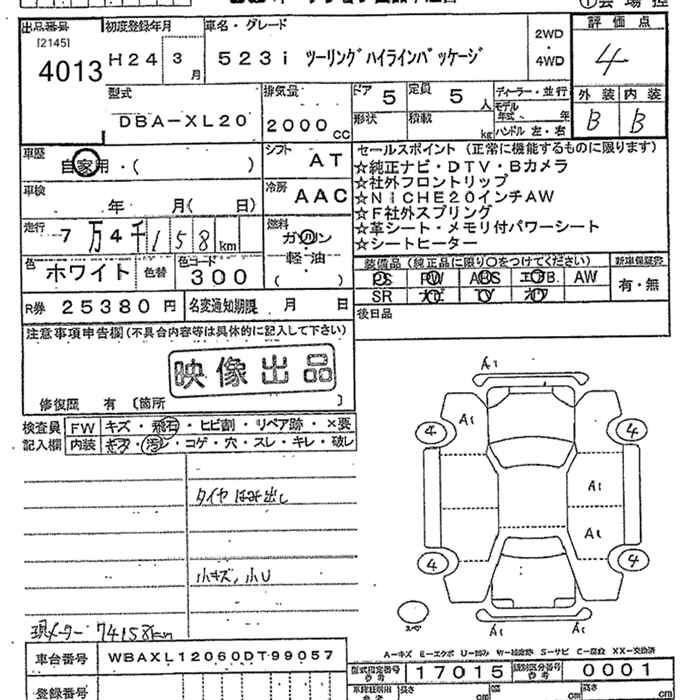 出品番号 初度登録年月 車名・グレード 評価点
[2145]
4013 H24 3月 523i ツーリングハイラインパッケージ 2WD・4WD 4
外装 内装
B B
型式 排気量 ドア 5 定員 5人 ディーラー・並行
DBA-XL20 2000cc 形状 積載 kg モデル年式 年
ハンドル 左・右
車歴 自家用・( ) シフト AT
セールスポイント (正常に機能するものに限ります)
☆純正ナビ・DTV・Bカメラ
☆社外フロントリップ
☆NICHE20インチAW
☆F社外スプリング
☆革シート・メモリ付パワーシート
☆シートヒーター
車検 年 月( 日) 冷房 AAC
走行 7万4千158km 燃料 ガソリン
軽・油
( )
色 ホワイト 色替 色コード 300
装備品 (純正品に限り○をつけてください) 新車保証書
PS PW ABS エアB. AW 有・無
SR ナビ TV
R券 25380円 名変通知期限 月 日
後日品
注意事項申告欄(不具合内容等は具体的に記入して下さい)
映像出品
修復歴 有 〔箇所 〕
検査員 FW キズ・飛石・ヒビ割・リペア跡・×要
記入欄 内装 キズ・汚レ・コゲ・穴・スレ・キレ・破レ
A1
A1
4 4
A1
A1
4 4
スペア
A1 A1
タイヤはみ出し
小キズ、小U
現メーター 74158km
A-キズ E-エクボ U-凹み W-補修跡 S-サビ C-腐食 XX-交換済
車台番号 WBAXL12060DT99057
型式指定番号 参考 17015 類別区分番号 参考 0001
登録番号 長さ cm 幅 cm 高さ cm